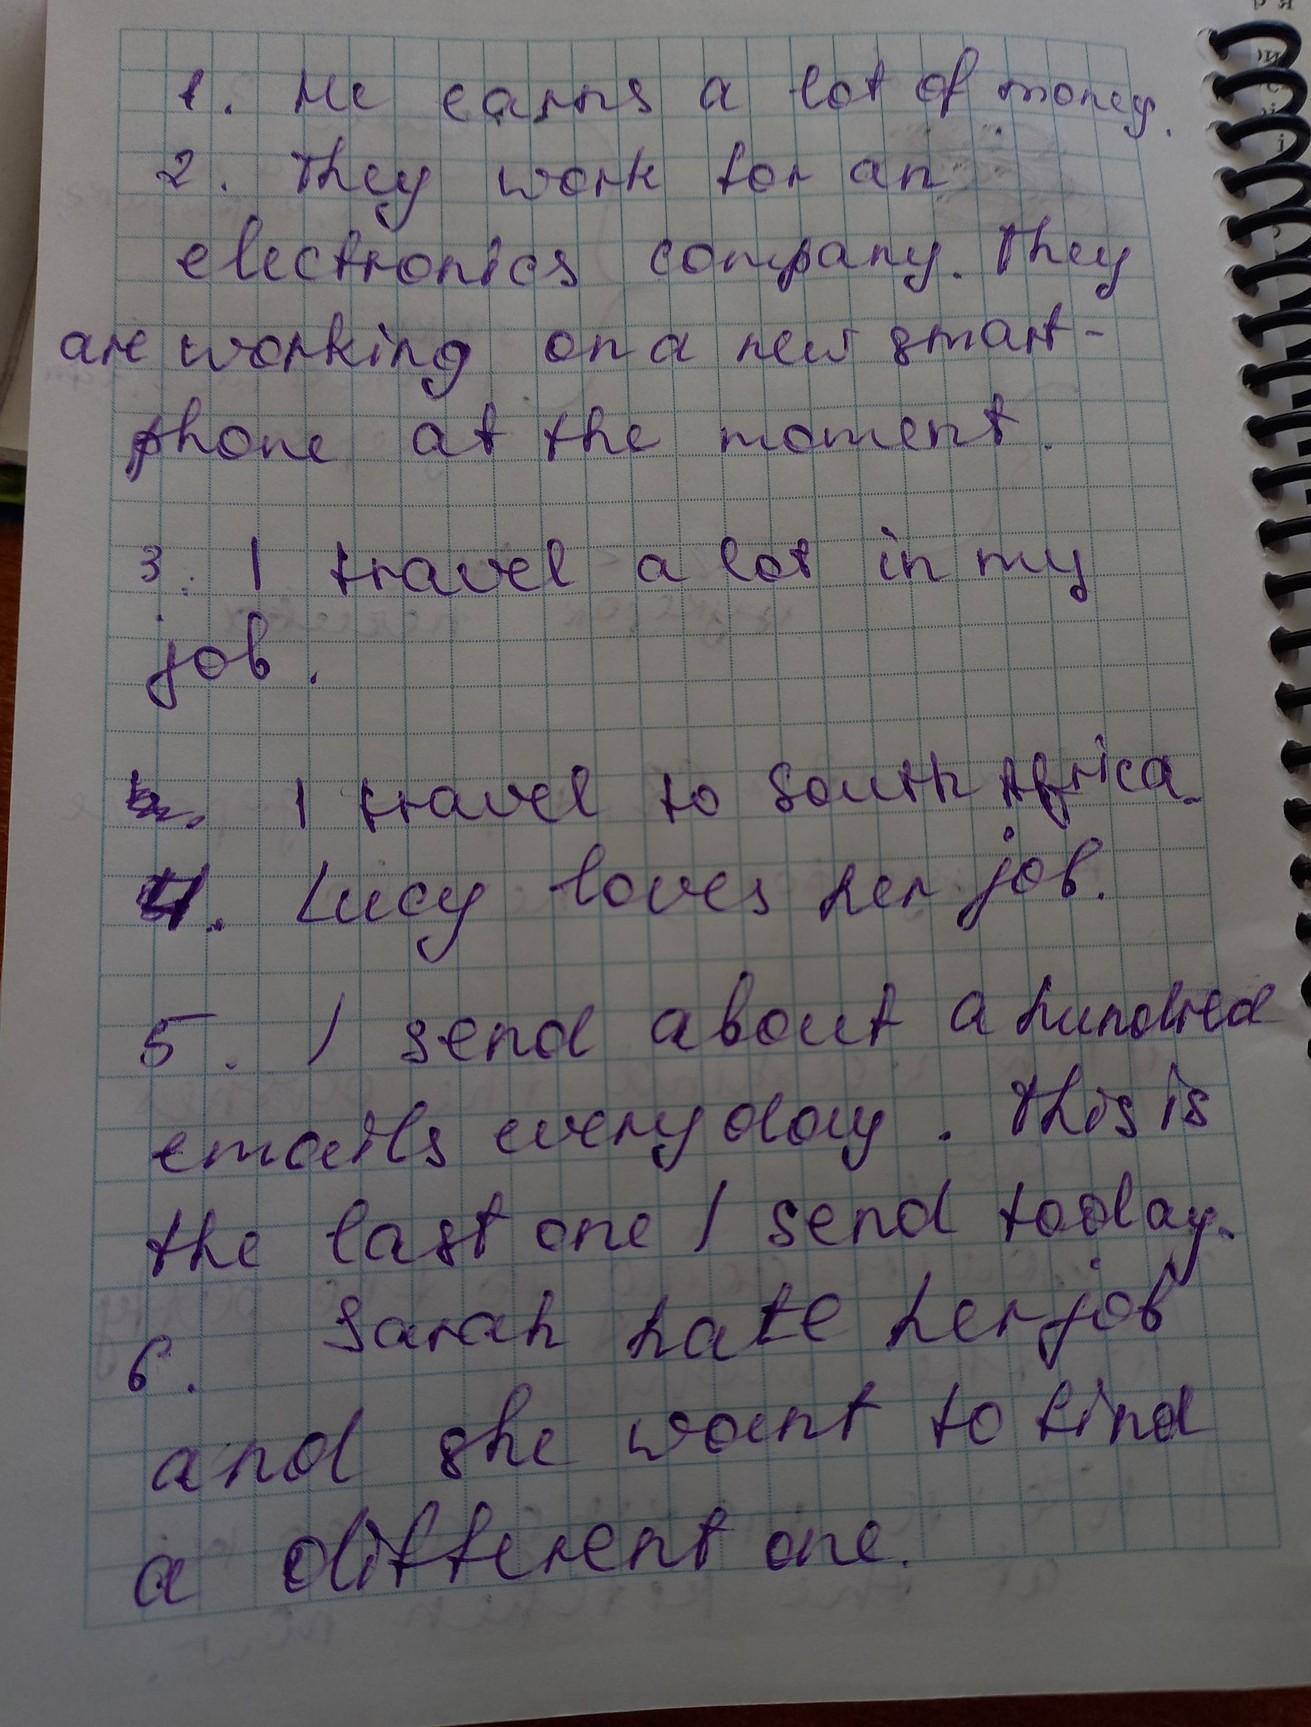 1. He earns a lot of money.
2. They work for an
electronics company. They
are working on a new smart-
phone at the moment.
3. I travel a lot in my
job.
I travel to South Africa.
4. Lucy loves her job.
5. I send about a hundred
emails every day. This is
the last one I send today.
6. Sarah hate her job
and she want to find
a different one.